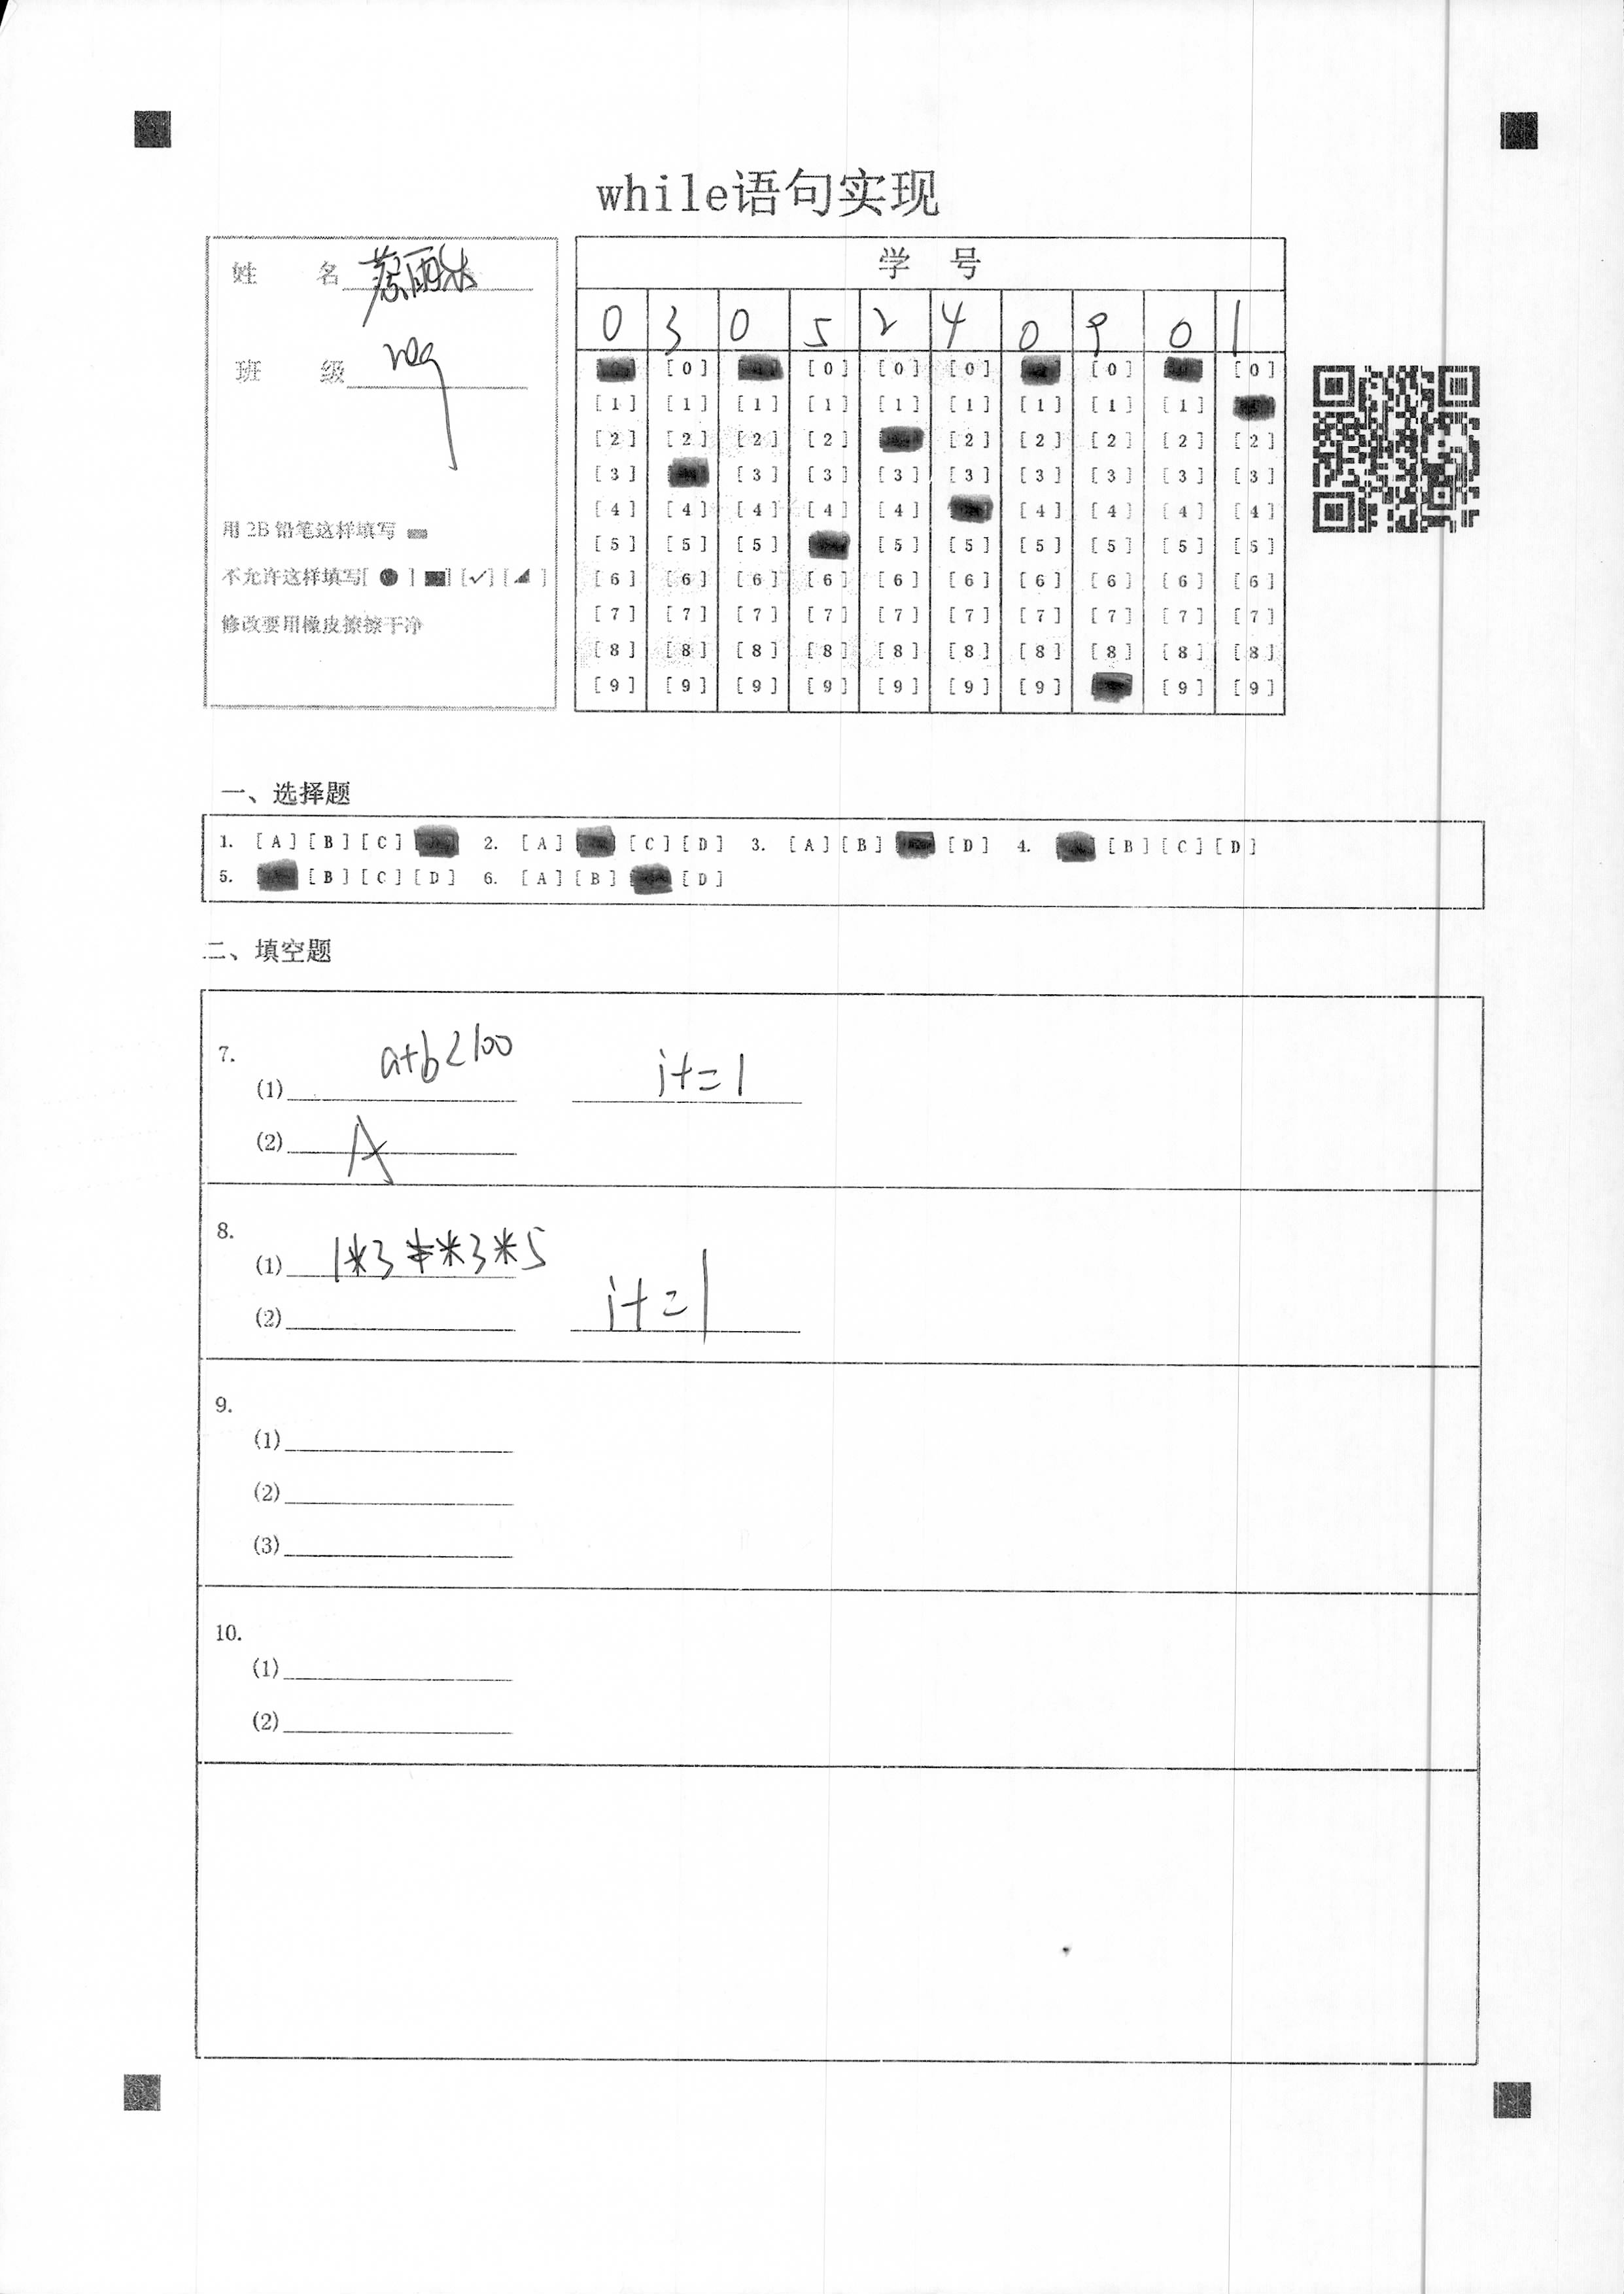 while语句实现
姓 名
班 级 209
用 2B 铅笔这样填写
不允许这样填写[ ● ] [■] [✓] [◢ ]
修改要用橡皮擦擦干净
学 号
0 3 0 5 2 4 0 9 0 1
[0] [0] [0] [0] [0] [0]
[1] [1] [1] [1] [1] [1] [1] [1] [1]
[2] [2] [2] [2] [2] [2] [2] [2] [2]
[3] [3] [3] [3] [3] [3] [3] [3] [3]
[4] [4] [4] [4] [4] [4] [4] [4] [4]
[5] [5] [5] [5] [5] [5] [5] [5] [5]
[6] [6] [6] [6] [6] [6] [6] [6] [6] [6]
[7] [7] [7] [7] [7] [7] [7] [7] [7] [7]
[8] [8] [8] [8] [8] [8] [8] [8] [8] [8]
[9] [9] [9] [9] [9] [9] [9] [9] [9]
一、选择题
1. [A] [B] [C] 2. [A] [C] [D] 3. [A] [B] [D] 4. [B] [C] [D]
5. [B] [C] [D] 6. [A] [B] [D]
二、填空题
7.
(1) a+b<100 i+=1
(2) A
8.
(1) 1*3 * *3*5
(2) i+=1
9.
(1)
(2)
(3)
10.
(1)
(2)